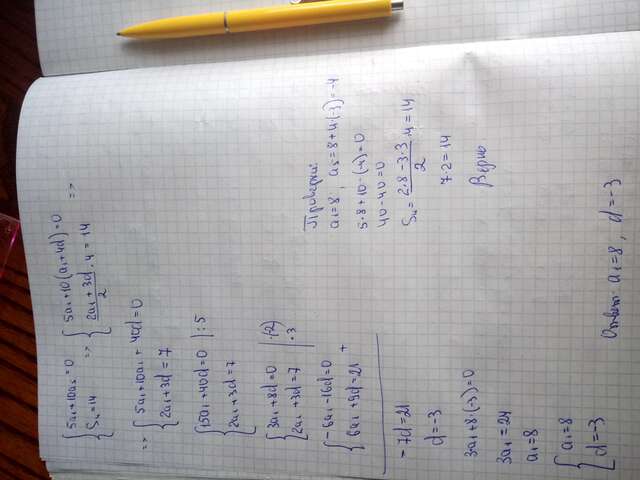 {5a₁+10a₅=0 => {5a₁+10(a₁+4d)=0 =>
{S₄=14 {(2a₁+3d)/2·4=14
=> {5a₁+10a₁+40d=0
{2a₁+3d=7
{15a₁+40d=0 |:5
{2a₁+3d=7
{3a₁+8d=0 |·(-2)
{2a₁+3d=7 |·3
{-6a₁-16d=0
{6a₁+9d=21 +
-7d=21
d=-3
3a₁+8·(-3)=0
3a₁=24
a₁=8
{a₁=8
{d=-3
Проверка:
a₁=8, a₅=8+4·(-3)=-4
5·8+10·(-4)=0
40-40=0
S₄=(2·8-3·3)/2·4=14
7·2=14
Верно
Ответ: a₁=8, d=-3